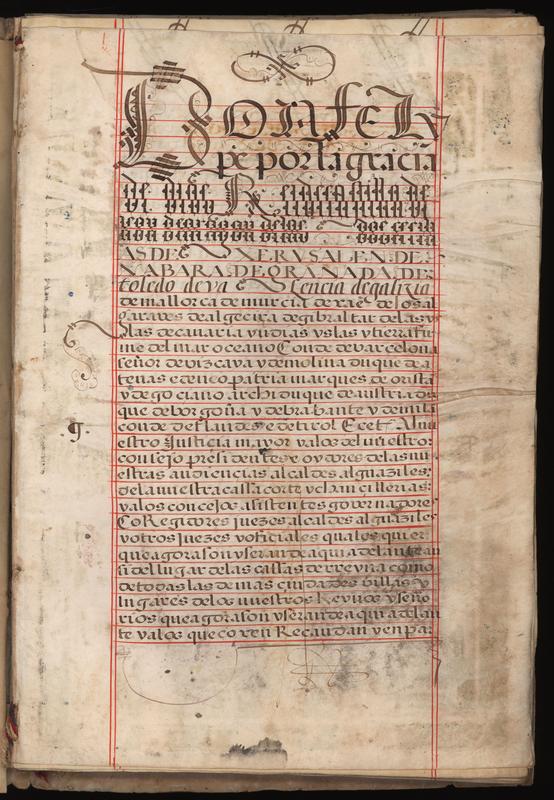 DON feli
pe por la gracia
de dios R castilla de
leon de aragon delas dos cecili
AS DE YERVSALEN DE
NABARA DE GRANADA DE
toledo de va Lencia de galizia
de mallorca de murcia de xaē de los al
garaves de algecira de gibraltar de las ys
las de canaria yndias yslas y tierra fir
me del mar oceano Conde de barcelona
señor de vizcaya y de molina duque de a
tenas e de neo patria marques de orista
y de gociano archiduque de austria du
que de borgoña y de brabante y de milā
conde de flandes e de tirol Ecetᵃ Al nu
estro Justicia mayor y a los del nuestro
consejo presidentes e oydores de las nu
estras audiencias alcaldes alguaziles
de la nuestra cassa corte y chancillerias
y a los concejos asistentes governadores
CoRegidores juezes alcaldes alguaziles
y otros juezes y oficiales quales quier
que agora son y seran de aqui adelante an
si del lugar de las cassas de rreyna como
de todas las demas ciudades villas y
lugares de los nuestros Reynos y seño
rios que agora son y seran de aqui adelan
te y a los que coxen Recaudan y enpa